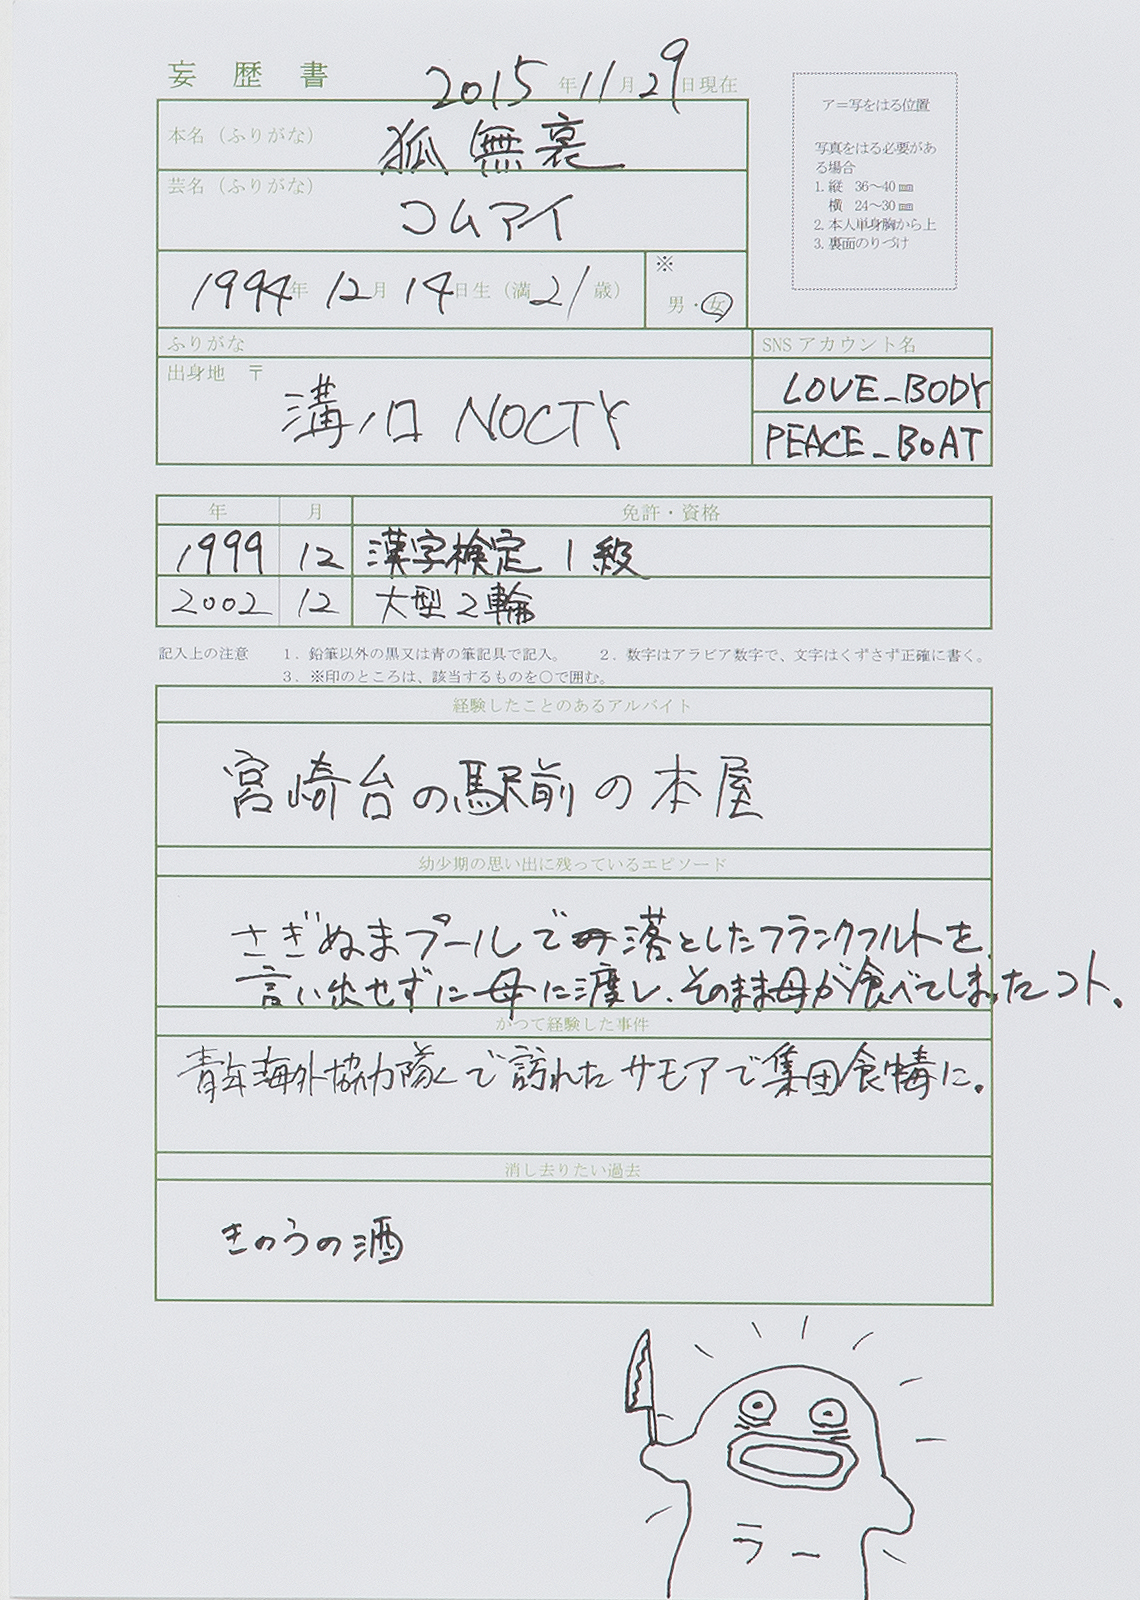 妄歴書
2015年11月29日現在
ア=写をはる位置
写真をはる必要があ
る場合
1. 縦 36〜40㎜
横 24〜30㎜
2. 本人単身胸から上
3. 裏面のりづけ
本名(ふりがな)
狐無哀
芸名(ふりがな)
コムアイ
1994年12月14日生(満21歳)
※
男・女
ふりがな
出身地 〒
溝ノ口 NOCTY
SNS アカウント名
LOVE_BODY
PEACE_BOAT
年 月 免許・資格
1999 12 漢字検定 1級
2002 12 大型2輪
記入上の注意 1. 鉛筆以外の黒又は青の筆記具で記入。 2. 数字はアラビア数字で、文字はくずさず正確に書く。
3. ※印のところは、該当するものを○で囲む。
経験したことのあるアルバイト
宮崎台の駅前の本屋
幼少期の思い出に残っているエピソード
さぎぬまプールで落としたフランクフルトを
言い出せずに母に渡し、そのまま母が食べてしまったコト。
かつて経験した事件
青年海外協力隊で訪れたサモアで集団食中毒に。
消し去りたい過去
きのうの酒
ラー